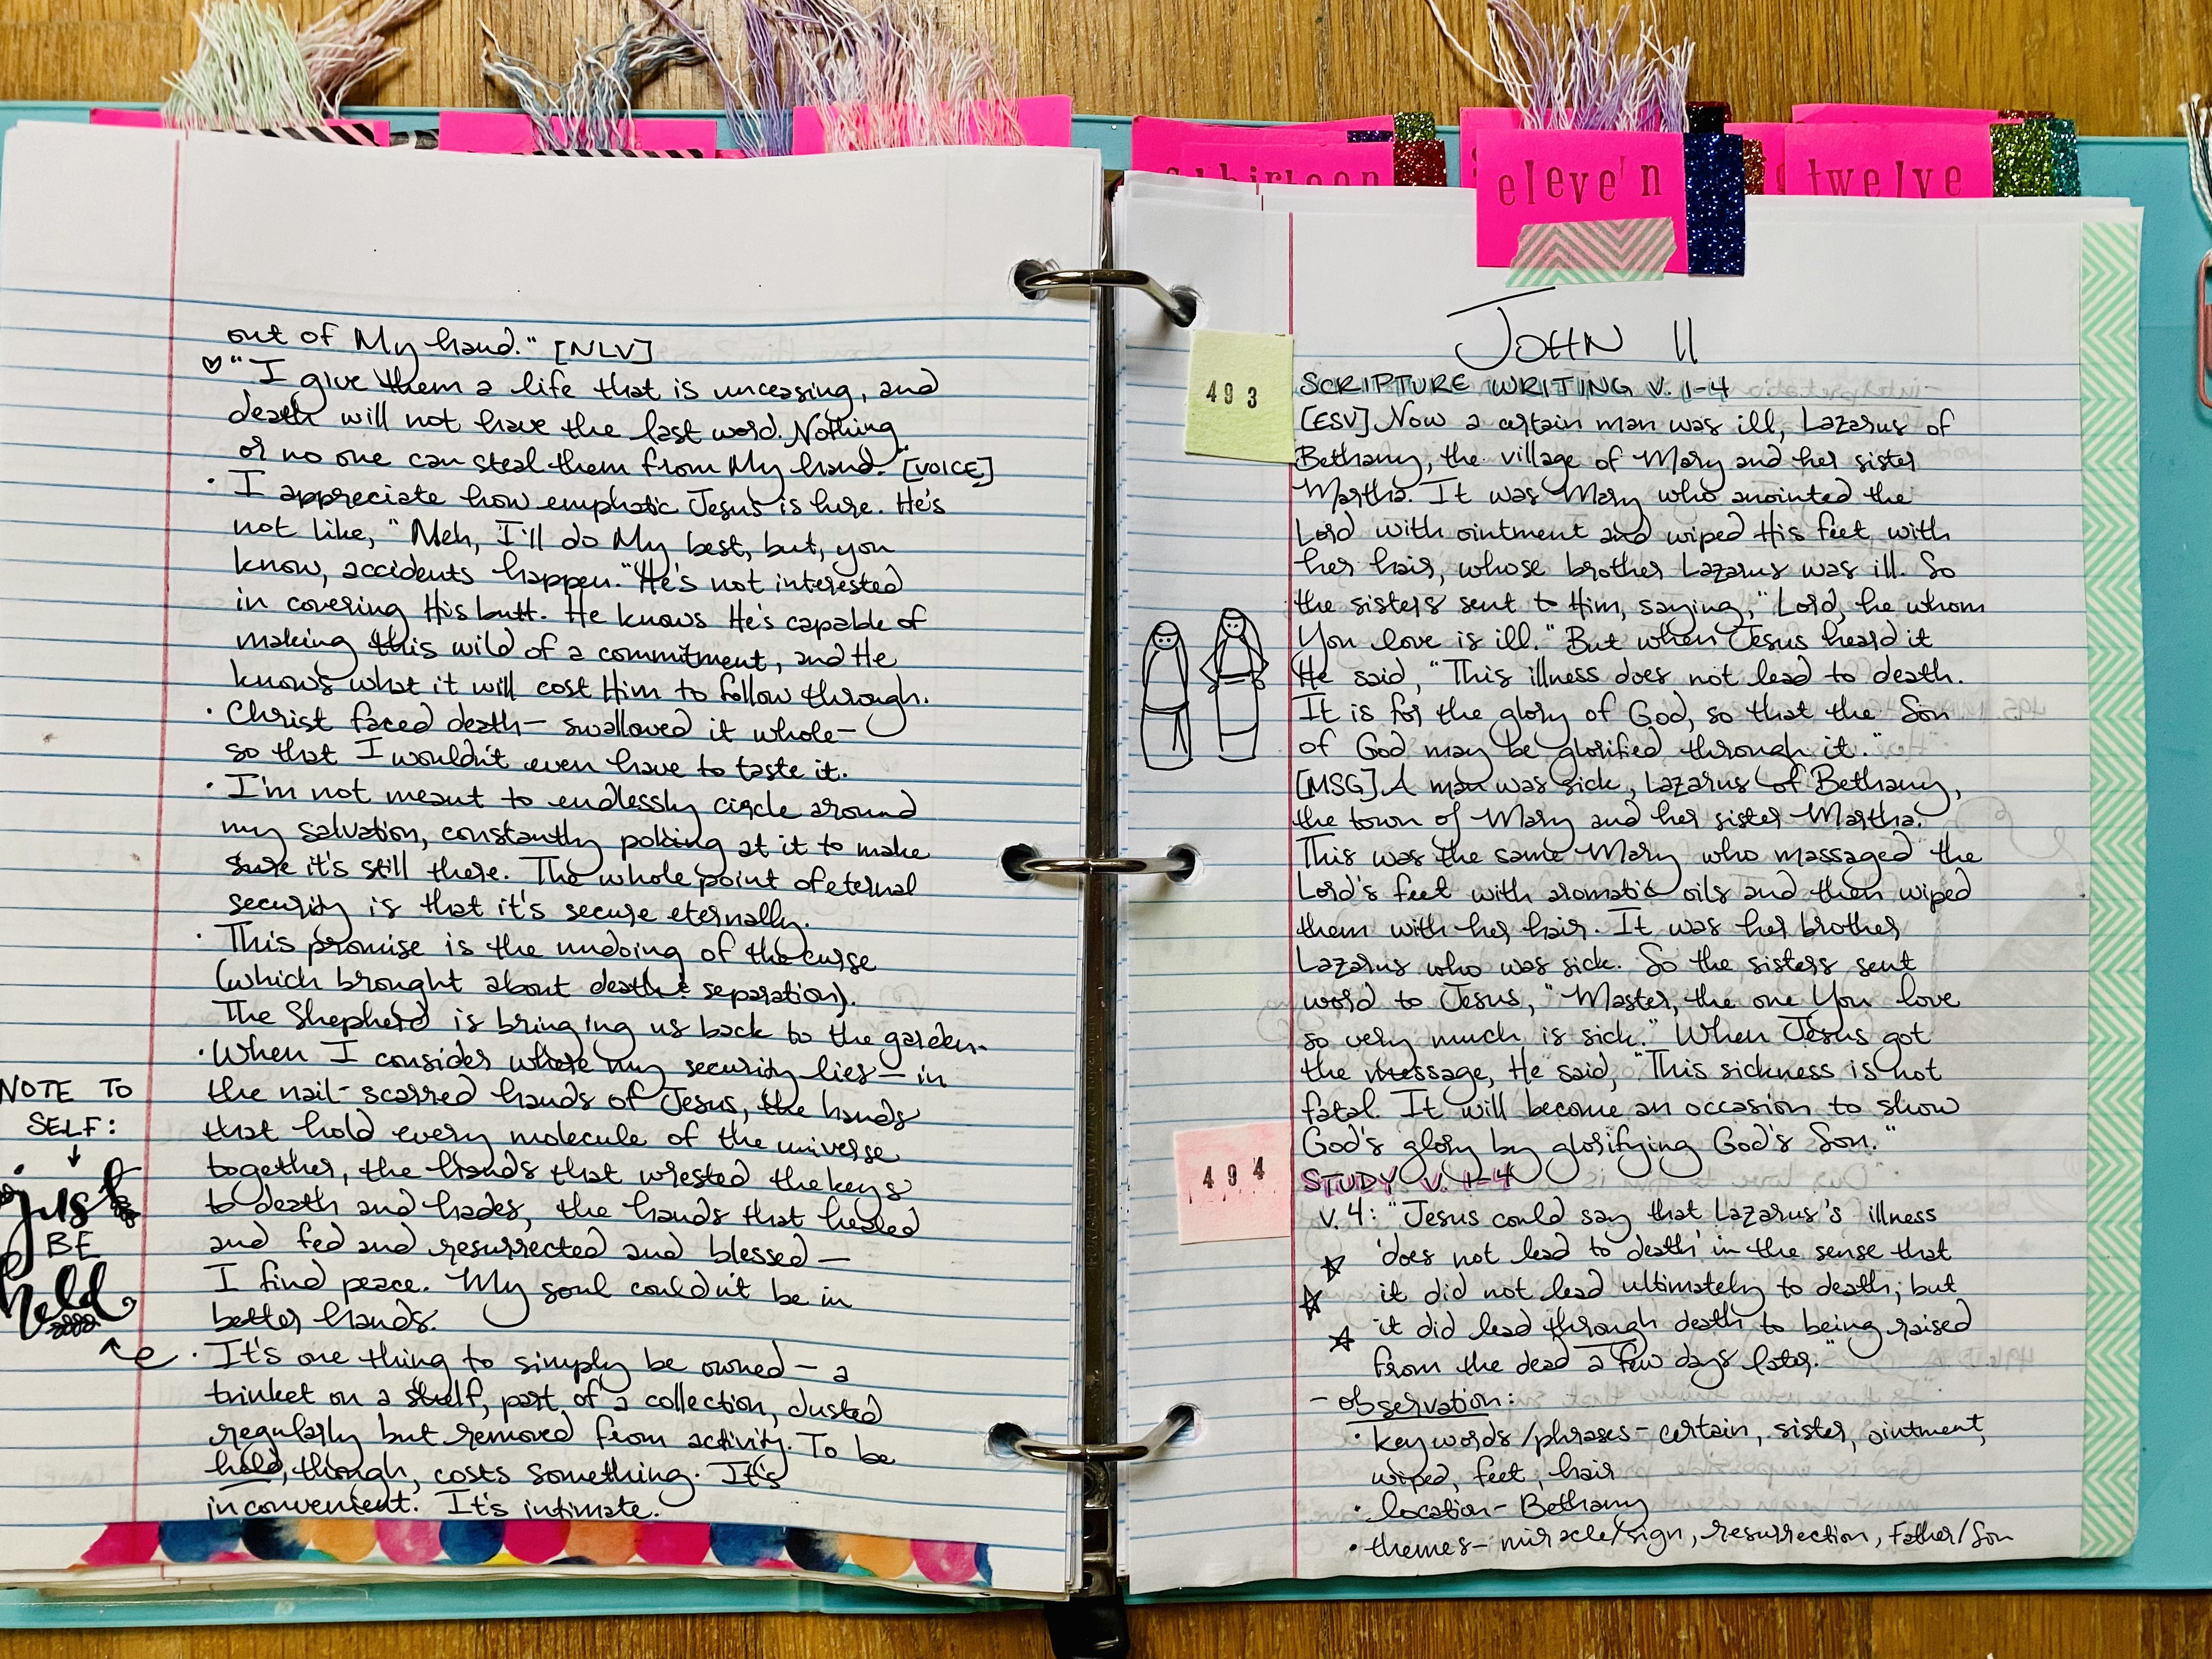 out of My hand." [NLV]
♡ "I give them a life that is unceasing, and
death will not have the last word. Nothing
or no one can steal them from My hand." [VOICE]
• I appreciate how emphatic Jesus is here. He's
not like, "Meh, I'll do My best, but, you
know, accidents happen." He's not interested
in covering His butt. He knows He's capable of
making this wild of a commitment, and He
knows what it will cost Him to follow through.
• Christ faced death — swallowed it whole —
so that I wouldn't even have to taste it.
• I'm not meant to endlessly circle around
my salvation, constantly poking at it to make
sure it's still there. The whole point of eternal
security is that it's secure eternally.
• This promise is the undoing of the curse
(which brought about death & separation).
The Shepherd is bringing us back to the garden.
• When I consider where my security lies — in
the nail-scarred hands of Jesus, the hands
that hold every molecule of the universe
together, the hands that wrested the keys
to death and hades, the hands that healed
and fed and resurrected and blessed —
I find peace. My soul couldn't be in
better hands.
• It's one thing to simply be owned — a
trinket on a shelf, part of a collection, dusted
regularly but removed from activity. To be
held, though, costs something. It's
inconvenient. It's intimate.
NOTE TO
SELF:
just
BE
held
eleve'n
twelve
JOHN 11
493
SCRIPTURE WRITING V. 1-4
[ESV] Now a certain man was ill, Lazarus of
Bethany, the village of Mary and her sister
Martha. It was Mary who anointed the
Lord with ointment and wiped His feet with
her hair, whose brother Lazarus was ill. So
the sisters sent to Him, saying, "Lord, he whom
You love is ill." But when Jesus heard it
He said, "This illness does not lead to death.
It is for the glory of God, so that the Son
of God may be glorified through it."
[MSG] A man was sick, Lazarus of Bethany,
the town of Mary and her sister Martha.
This was the same Mary who massaged the
Lord's feet with aromatic oils and then wiped
them with her hair. It was her brother
Lazarus who was sick. So the sisters sent
word to Jesus, "Master, the one You love
so very much is sick." When Jesus got
the message, He said, "This sickness is not
fatal. It will become an occasion to show
God's glory by glorifying God's Son."
494
STUDY V. 1-4
v. 4: "Jesus could say that Lazarus's illness
'does not lead to death' in the sense that
it did not lead ultimately to death; but
it did lead through death to being raised
from the dead a few days later."
- observation:
• keywords/phrases - certain, sister, ointment,
wiped, feet, hair
• location - Bethany
• themes - miracle/sign, resurrection, Father/Son